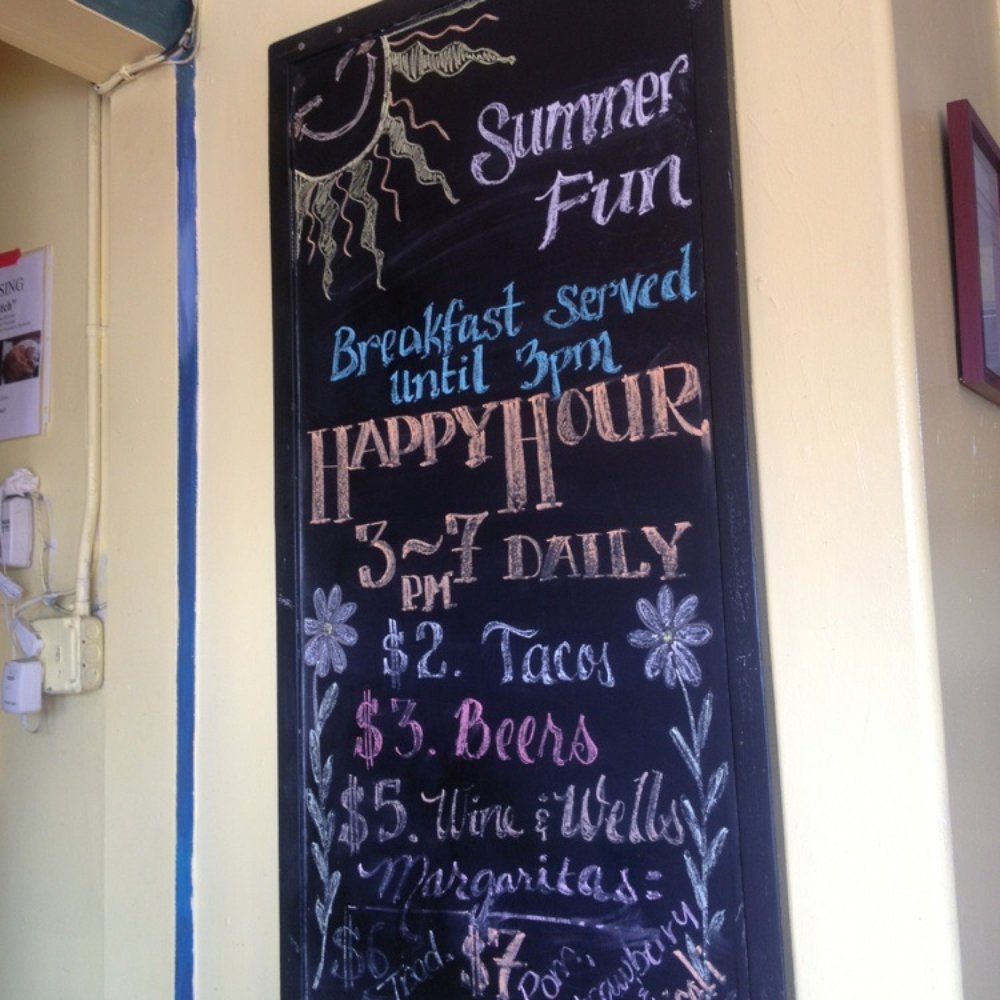 Summer
Fun
Breakfast served
until 3pm
HAPPY HOUR
3~7 DAILY
PM
$2. Tacos
$3. Beers
$5. Wine & Wells
Margaritas:
$6 Trad. $7 Pom,
SING